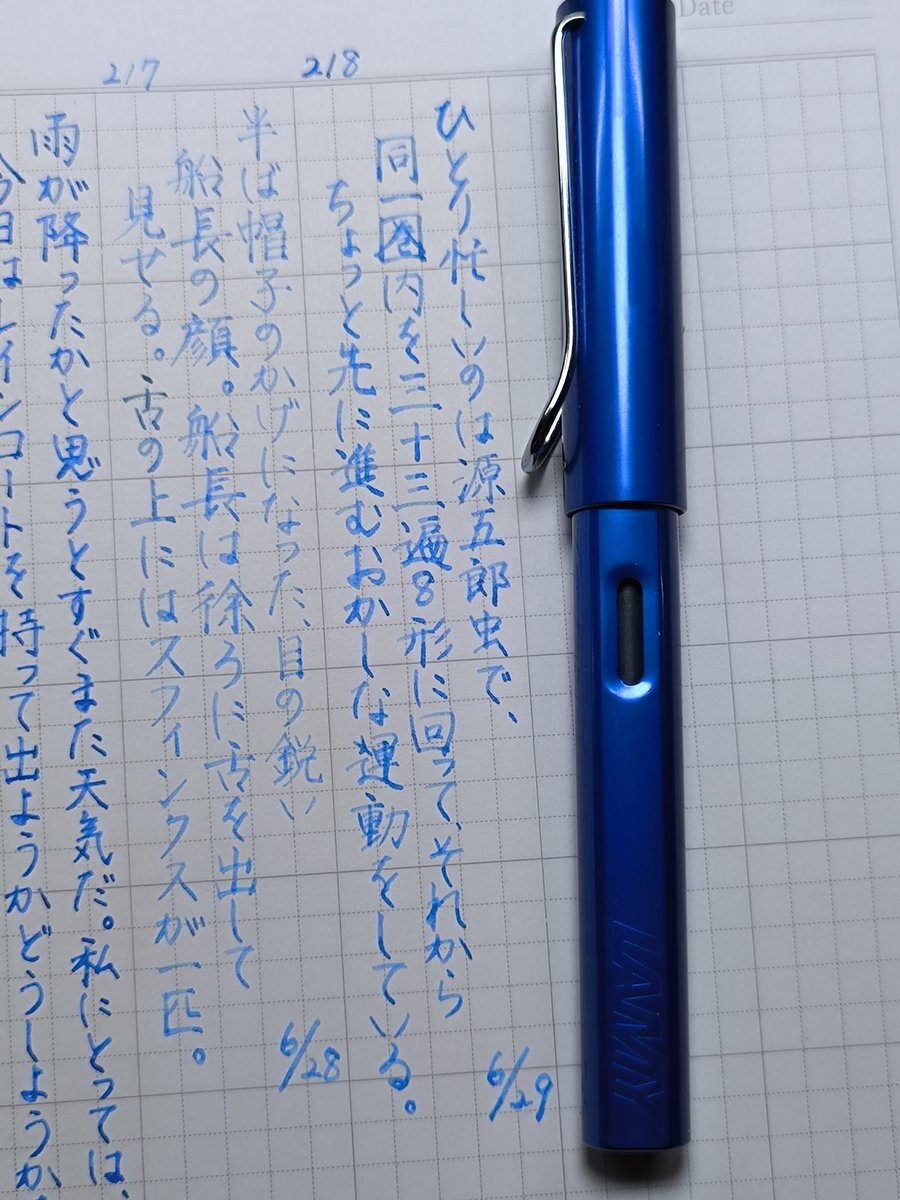 Date
218
ひとり忙しいのは源五郎虫で、
同一圏内を三十三遍8形に回って、それから
ちょっと先に進むおかしな運動をしている。
6/29
217
半ば帽子のかげになった、目の鋭い
船長の顔。船長は徐ろに舌を出して
見せる。舌の上にはスフィンクスが一匹。
6/28
雨が降ったかと思うとすぐまた天気だ。私にとっては、
今日はレインコートを持って出ようかどうしようか
LAMY